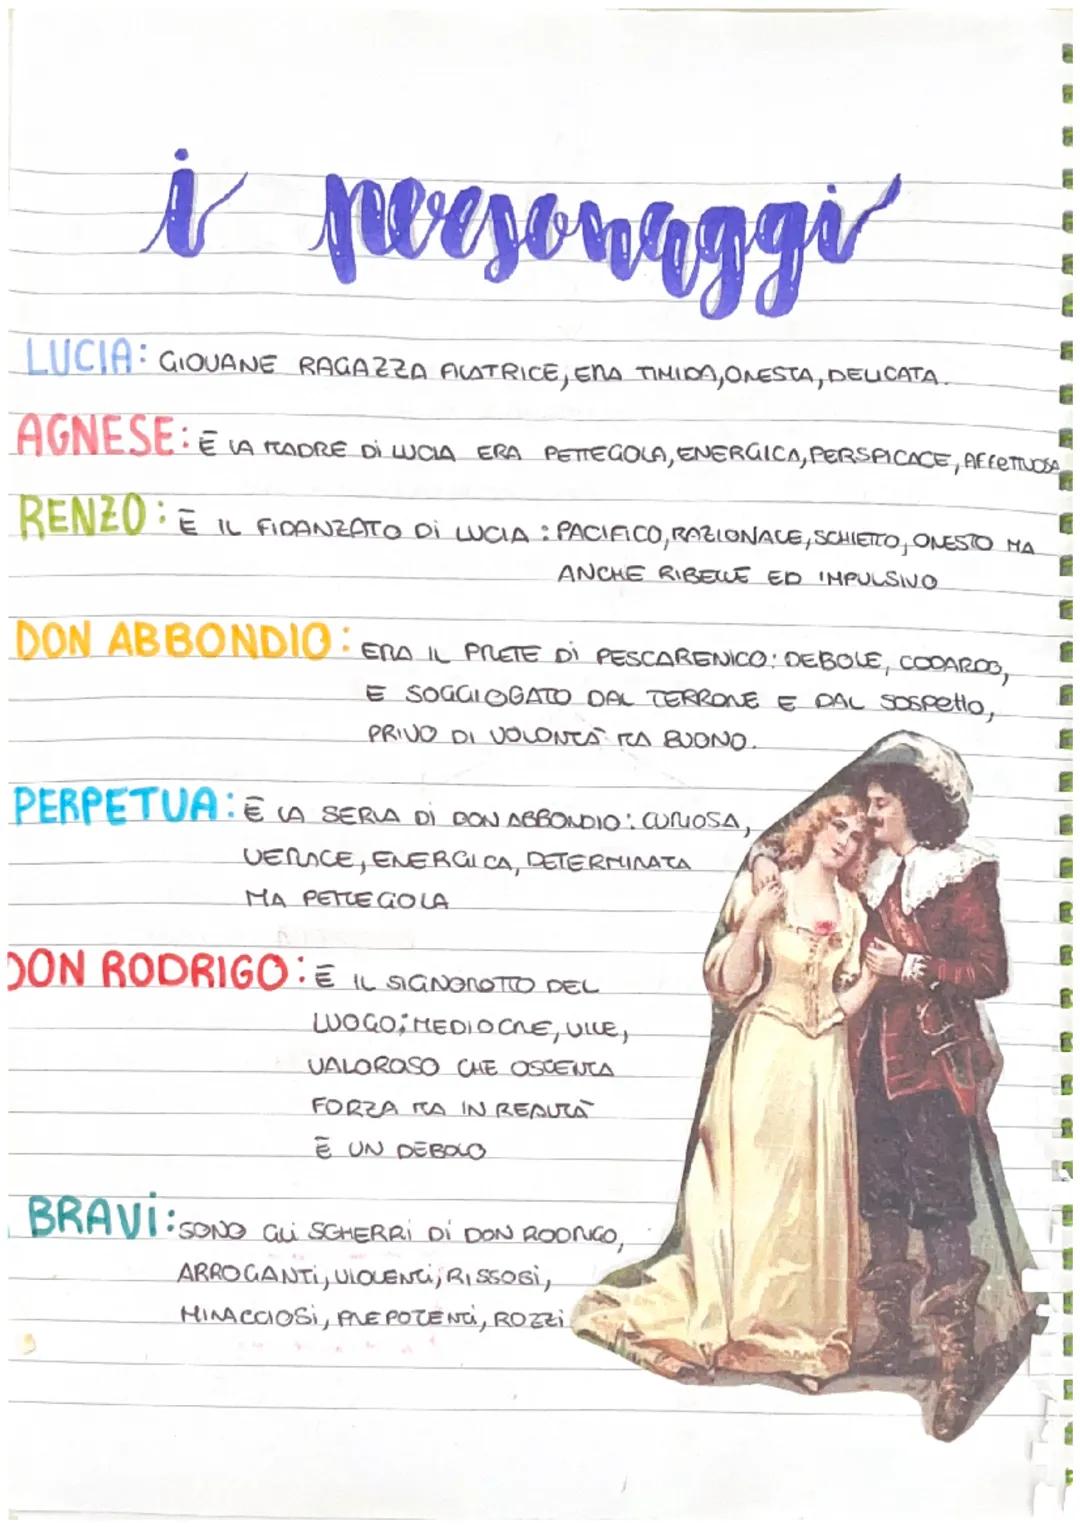 i personaggi
LUCIA: GIOVANE RAGAZZA FILATRICE, ERA TIMIDA, ONESTA, DELICATA.
AGNESE: È LA MADRE Di LUCIA ERA PETTEGOLA, ENERGICA, PERSPICACE, AFFETTUOSA
RENZO: È IL FIDANZATO Di LUCIA: PACIFICO, RAZIONALE, SCHIETTO, ONESTO MA
ANCHE RIBELLE ED IMPULSIVO
DON ABBONDIO: ERA IL PRETE Di PESCARENICO: DEBOLE, CODARDO,
E SOGGIOGATO DAL TERRORE E DAL SOSPETTO,
PRIVO DI VOLONTÀ MA BUONO.
PERPETUA: È LA SERVA Di DON ABBONDIO: CURIOSA,
VERACE, ENERGICA, DETERMINATA
MA PETTEGOLA
DON RODRIGO: È IL SIGNOROTTO DEL
LUOGO; MEDIOCRE, VILE,
VALOROSO CHE OSTENTA
FORZA MA IN REALTÀ
È UN DEBOLO
BRAVi: SONO GLi SGHERRi Di DON RODRIGO,
ARROGANTi, VIOLENTi, RISSOSi,
MINACCIOSi, PREPOTENTi, ROZZi